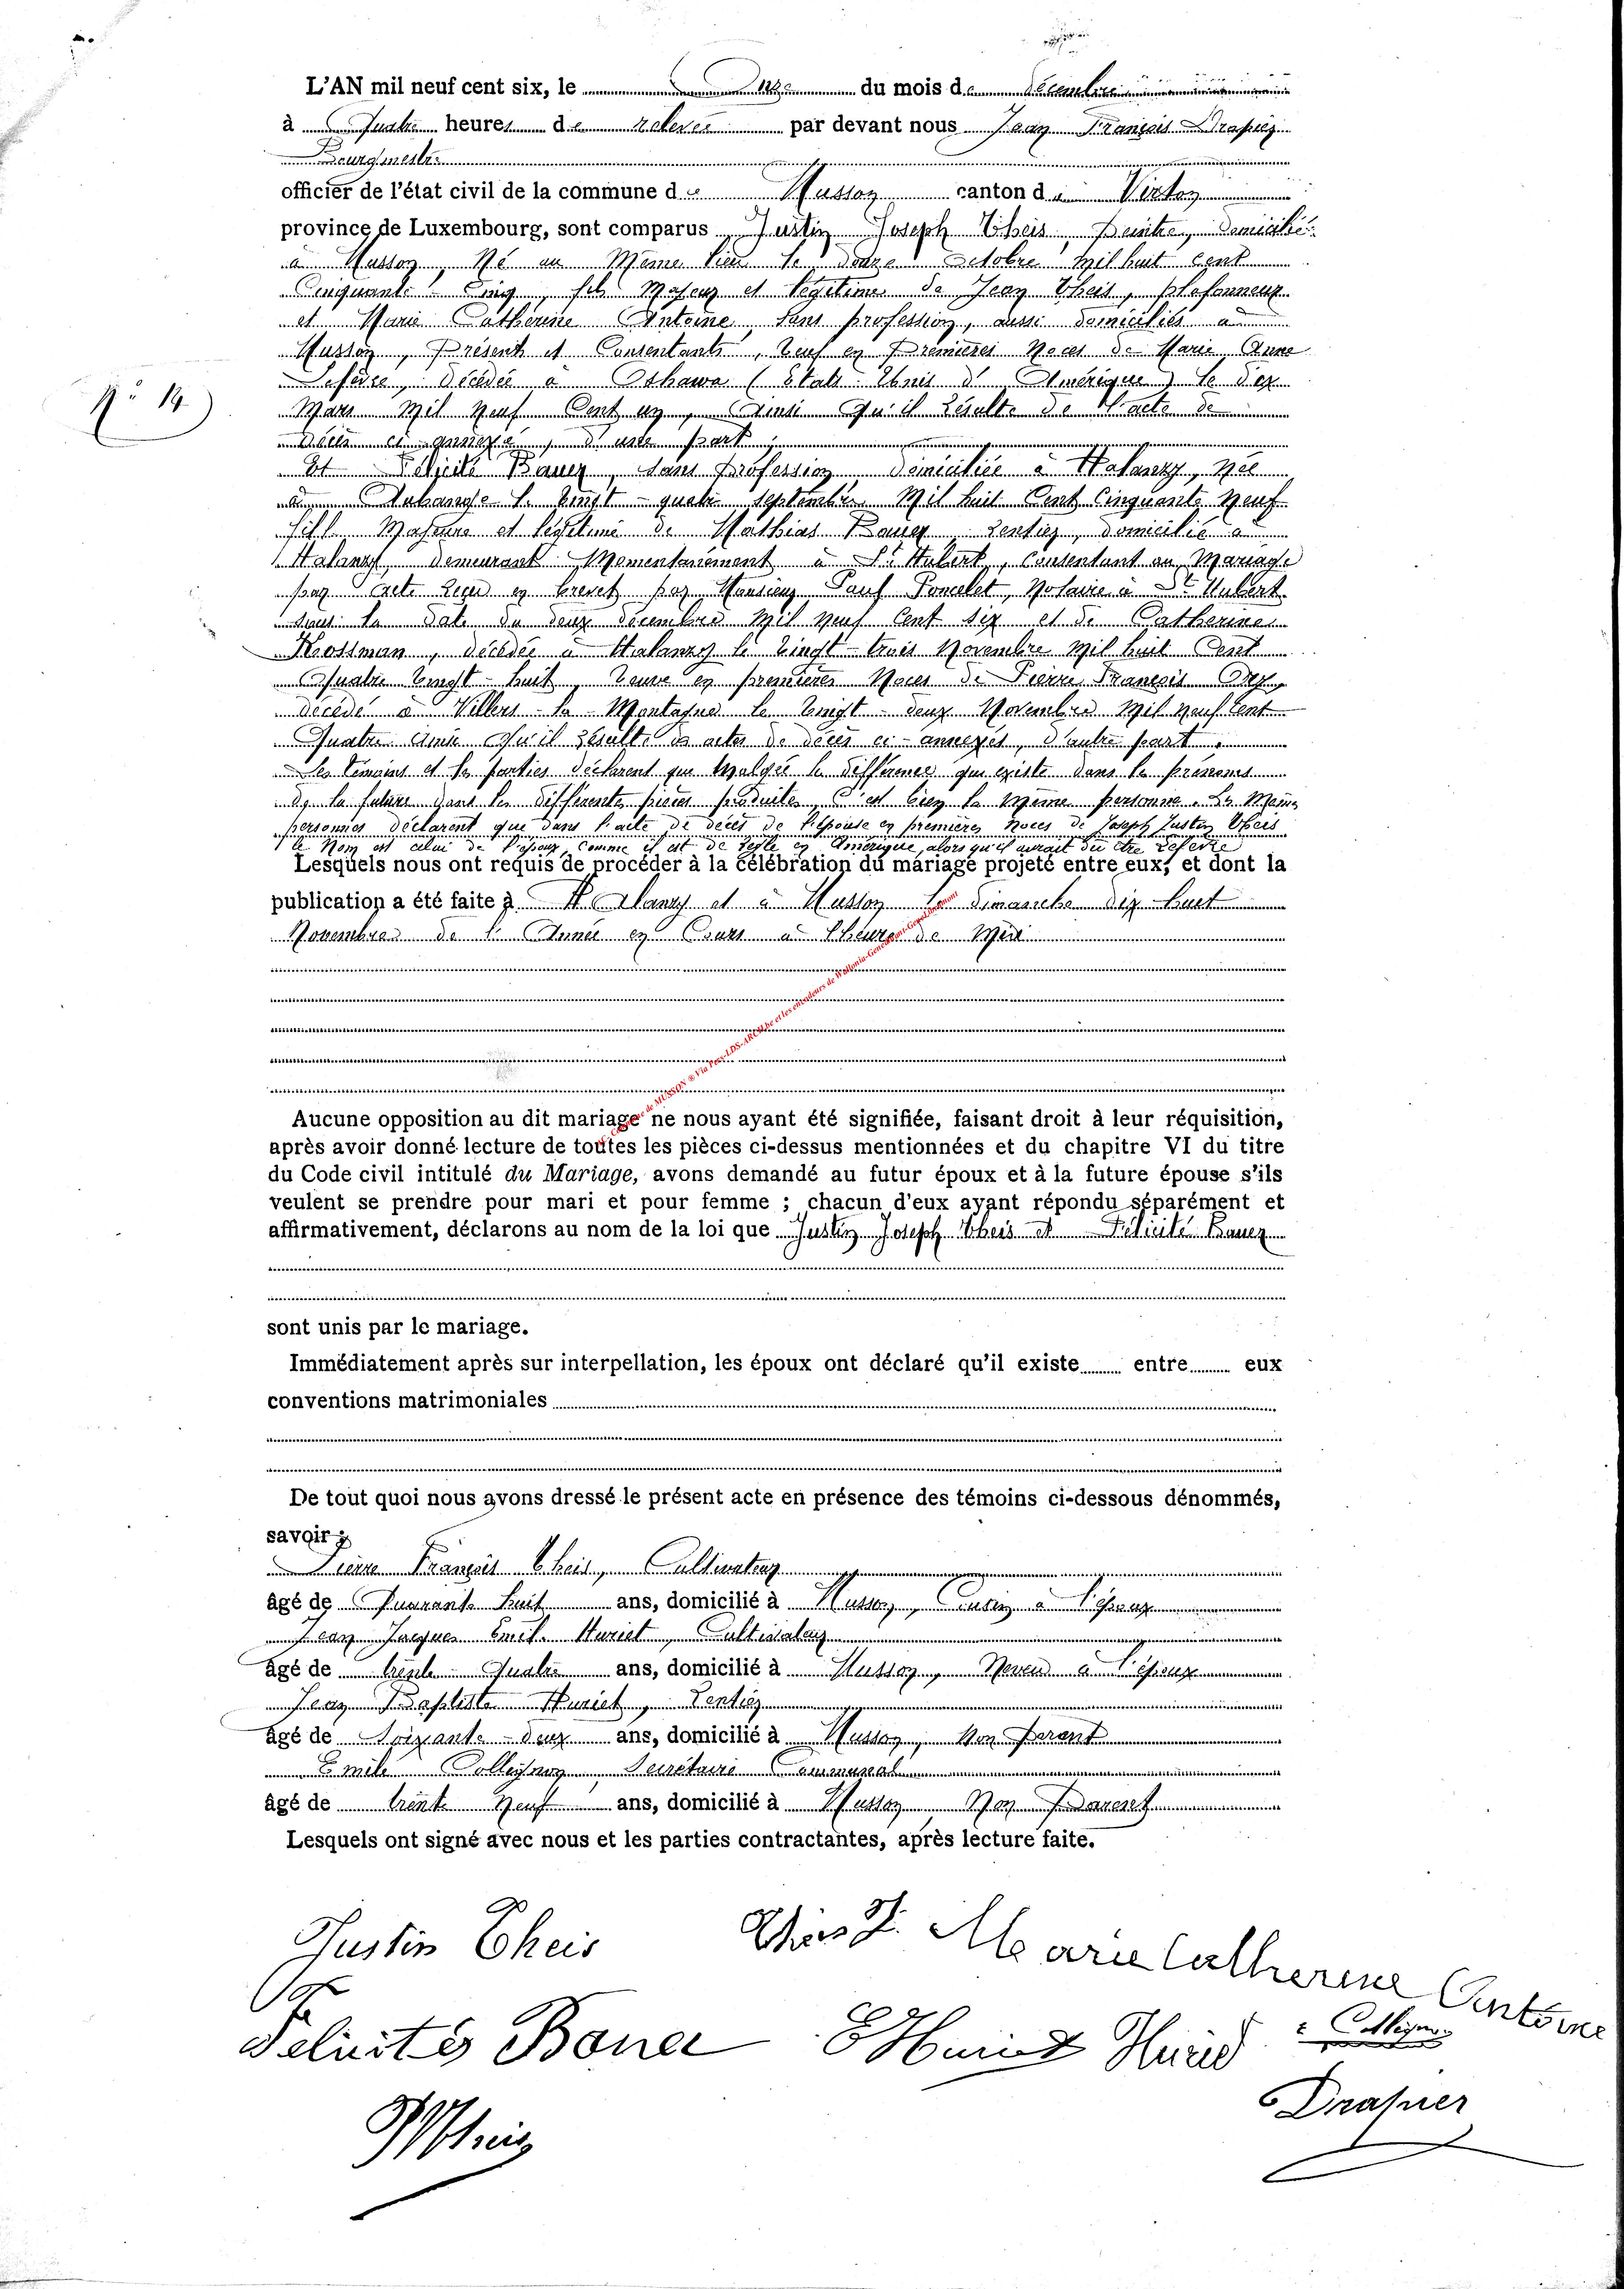 L'AN mil neuf cent six, le onze du mois de décembre
à Quatre heures de relevée par devant nous Jean François Drapier
Bourgmestre
officier de l'état civil de la commune de Musson canton de Virton
province de Luxembourg, sont comparus Justin Joseph Theis, Peintre, domicilié
à Musson, Né au Même lieu le douze Octobre Mil huit cent
Cinquante-Cinq, fils Majeur et légitime de Jean Theis, plafonneur
et Marie Catherine Antoine, sans profession, aussi domiciliés à
Musson, Présents et Consentants, veuf en Premières Noces de Marie Anne
Lefèvre, décédée à Othawa (Etats-Unis d'Amérique) le dix
Mars Mil Neuf Cent un, Ainsi Qu'il résulte de l'acte de
Décès ci-annexé, d'une part;
N° 14
Et Félicité Bauer, sans profession, domiciliée à Halanzy, Née
à Aubange le vingt-quatre septembre Mil huit Cent Cinquante Neuf
fille Majeure et légitime de Mathias Bauer, rentier, domicilié à
Halanzy, demeurant Momentanément à St Hubert, Consentant au Mariage
par acte reçu en brevet par Monsieur Paul Poncelet, Notaire à St Hubert
sous la date du deux décembre Mil Neuf Cent six et de Catherine
Krossman, décédée à Halanzy le vingt-trois Novembre Mil huit Cent
Quatre vingt-huit, veuve en premières Noces de Pierre François
décédé à Villers-la-Montagne le vingt-deux Novembre Mil Neuf Cent
Quatre Ainsi Qu'il résulte des actes de décès ci-annexés, d'autre part.
Les témoins et les parties déclarent que Malgré la différence qui existe dans les prénoms
de la future dans les différentes pièces produites, c'est bien la Même personne. Les Mêmes
personnes déclarent que dans l'acte de décès de l'épouse en premières noces de Joseph Justin Theis
le Nom est celui de l'époux, comme il est de règle en Amérique, alors qu'il aurait dû être Lefèvre
Lesquels nous ont requis de procéder à la célébration du mariage projeté entre eux, et dont la
publication a été faite à Halanzy et à Musson le dimanche dix-huit
Novembre de l'Année en Cours à l'heure de Midi
Commune de MUSSON ® Via Pers-LDS-ARCH.be et les encodeurs de Wallonia-Genealogant-GeneLibrement
Aucune opposition au dit mariage ne nous ayant été signifiée, faisant droit à leur réquisition,
après avoir donné lecture de toutes les pièces ci-dessus mentionnées et du chapitre VI du titre
du Code civil intitulé du Mariage, avons demandé au futur époux et à la future épouse s'ils
veulent se prendre pour mari et pour femme ; chacun d'eux ayant répondu séparément et
affirmativement, déclarons au nom de la loi que Justin Joseph Theis et Félicité Bauer
sont unis par le mariage.
Immédiatement après sur interpellation, les époux ont déclaré qu'il existe entre eux
conventions matrimoniales
De tout quoi nous avons dressé le présent acte en présence des témoins ci-dessous dénommés,
savoir :
Pierre François Theis, Cultivateur
âgé de Quarante huit ans, domicilié à Musson, Cousin à l'époux
Jean Jacques Emile Huriet, Cultivateur
âgé de trente-Quatre ans, domicilié à Musson, Neveu à l'époux
Jean Baptiste Huriet, Rentier
âgé de Soixante-deux ans, domicilié à Musson, Non Parent
Emile Collignon, Secrétaire Communal
âgé de trente Neuf ans, domicilié à Musson, Non Parent
Lesquels ont signé avec nous et les parties contractantes, après lecture faite.
Justin Theis Theis J. Marie Catherine Antoine
Felicités Bauer EHuriet Huriet E Collignon
Drapier